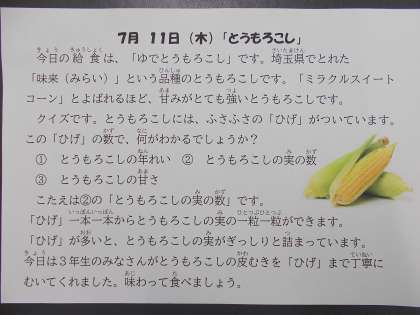 7月 11日(木)「とうもろこし」
今日の給食は、「ゆでとうもろこし」です。埼玉県でとれた
「味来(みらい)」という品種のとうもろこしです。「ミラクルスイート
コーン」とよばれるほど、甘みがとても強いとうもろこしです。
クイズです。とうもろこしには、ふさふさの「ひげ」がついています。
この「ひげ」の数で、何がわかるでしょうか?
① とうもろこしの年れい ② とうもろこしの実の数
③ とうもろこしの甘さ
こたえは②の「とうもろこしの実の数」です。
「ひげ」一本一本からとうもろこしの実の一粒一粒ができます。
「ひげ」が多いと、とうもろこしの実がぎっしりと詰まっています。
今日は3年生のみなさんがとうもろこしの皮むきを「ひげ」まで丁寧に
むいてくれました。味わって食べましょう。